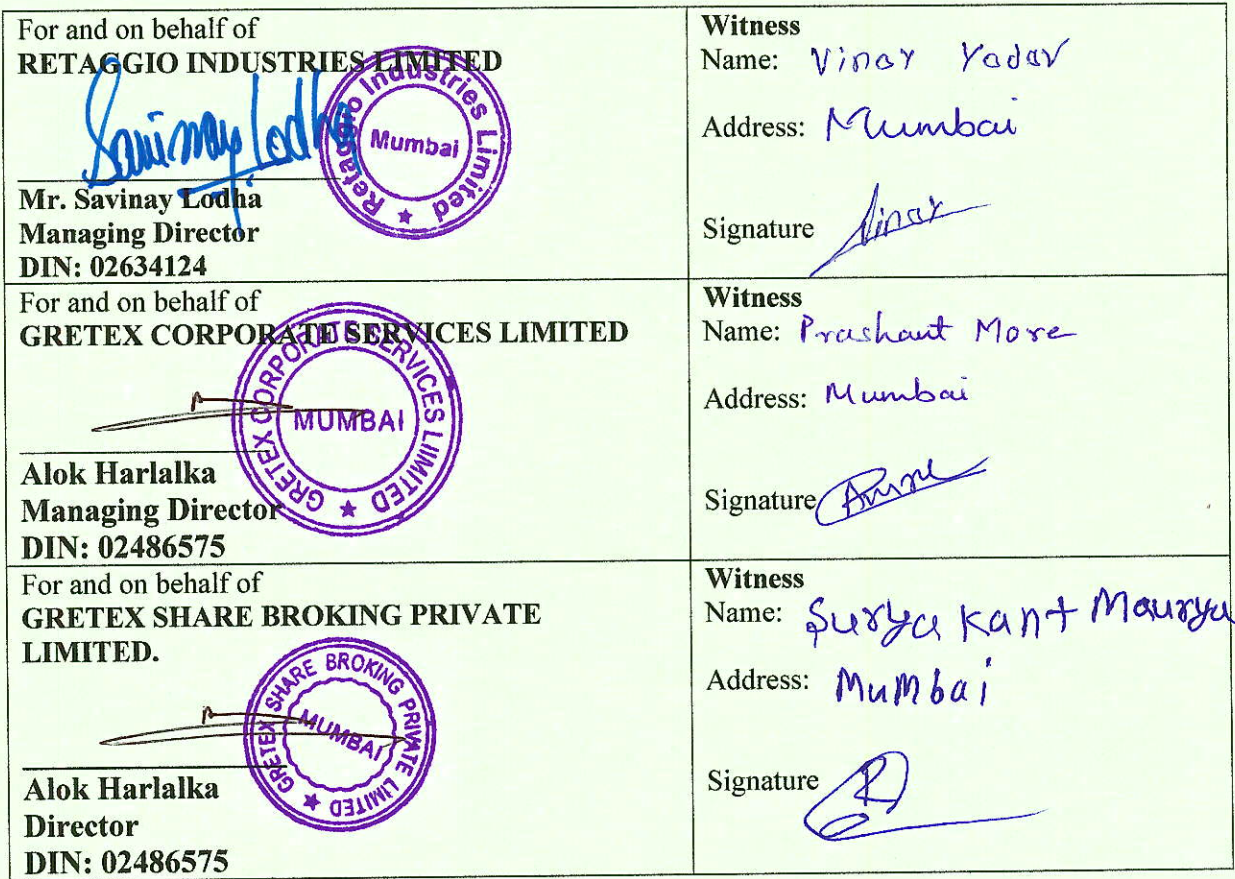 For and on behalf of
RETAGGIO INDUSTRIES LIMITED
Savinay Lodha
Retaggio Industries Limited ★
Mumbai
Mr. Savinay Lodha
Managing Director
DIN: 02634124
Witness
Name: Vinay Yadav
Address: Mumbai
Signature Vinay
For and on behalf of
GRETEX CORPORATE SERVICES LIMITED
GRETEX CORPORATE SERVICES LIIMITED ★
MUMBAI
Alok Harlalka
Managing Director
DIN: 02486575
Witness
Name: Prashant More
Address: Mumbai
Signature
For and on behalf of
GRETEX SHARE BROKING PRIVATE
LIMITED.
GRETEX SHARE BROKING PRIVATE LIMITED ★
MUMBAI
Alok Harlalka
Director
DIN: 02486575
Witness
Name: Surya Kant Maurya
Address: Mumbai
Signature